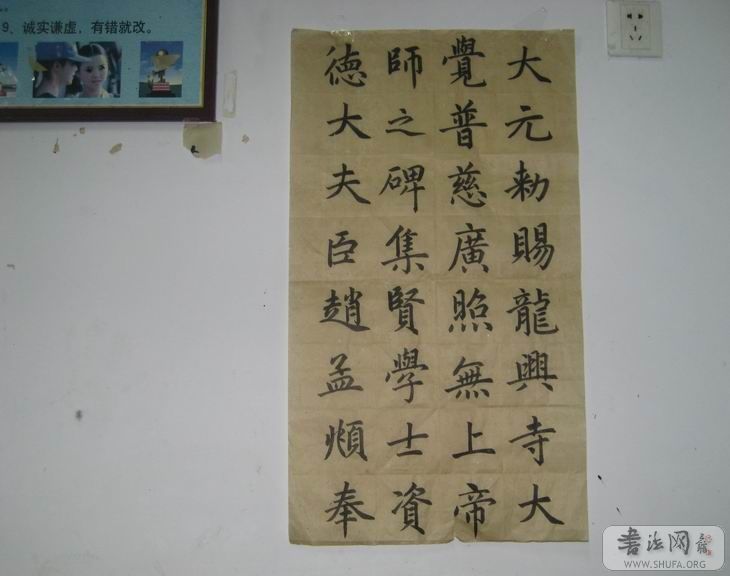 9、诚实谦虚，有错就改。
大元勅賜龍興寺大
覺普慈廣照無上帝
師之碑集賢學士資
德大夫臣趙孟頫奉
書法网
WWW.SHUFA.ORG